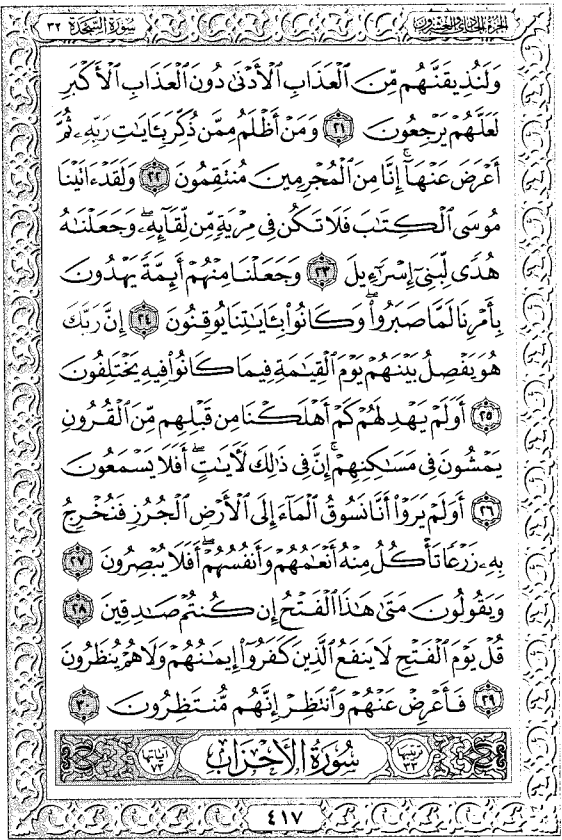 الجزء الحادي والعشرون سورة السجدة ٣٢
وَلَنُذِيقَنَّهُم مِّنَ الْعَذَابِ الْأَدْنَىٰ دُونَ الْعَذَابِ الْأَكْبَرِ
لَعَلَّهُمْ يَرْجِعُونَ ٢١ وَمَنْ أَظْلَمُ مِمَّن ذُكِّرَ بِـَٔايَـٰتِ رَبِّهِۦ ثُمَّ
أَعْرَضَ عَنْهَآ ۚ إِنَّا مِنَ الْمُجْرِمِينَ مُنتَقِمُونَ ٢٢ وَلَقَدْ ءَاتَيْنَا
مُوسَى الْكِتَـٰبَ فَلَا تَكُن فِى مِرْيَةٍ مِّن لِّقَآئِهِۦ ۖ وَجَعَلْنَـٰهُ
هُدًى لِّبَنِىٓ إِسْرَٰٓءِيلَ ٢٣ وَجَعَلْنَا مِنْهُمْ أَئِمَّةً يَهْدُونَ
بِأَمْرِنَا لَمَّا صَبَرُوا۟ ۖ وَكَانُوا۟ بِـَٔايَـٰتِنَا يُوقِنُونَ ٢٤ إِنَّ رَبَّكَ
هُوَ يَفْصِلُ بَيْنَهُمْ يَوْمَ الْقِيَـٰمَةِ فِيمَا كَانُوا۟ فِيهِ يَخْتَلِفُونَ
٢٥ أَوَلَمْ يَهْدِ لَهُمْ كَمْ أَهْلَكْنَا مِن قَبْلِهِم مِّنَ الْقُرُونِ
يَمْشُونَ فِى مَسَـٰكِنِهِمْ ۚ إِنَّ فِى ذَٰلِكَ لَـَٔايَـٰتٍ ۖ أَفَلَا يَسْمَعُونَ
٢٦ أَوَلَمْ يَرَوْا۟ أَنَّا نَسُوقُ الْمَآءَ إِلَى الْأَرْضِ الْجُرُزِ فَنُخْرِجُ
بِهِۦ زَرْعًا تَأْكُلُ مِنْهُ أَنْعَـٰمُهُمْ وَأَنفُسُهُمْ ۖ أَفَلَا يُبْصِرُونَ ٢٧
وَيَقُولُونَ مَتَىٰ هَـٰذَا الْفَتْحُ إِن كُنتُمْ صَـٰدِقِينَ ٢٨
قُلْ يَوْمَ الْفَتْحِ لَا يَنفَعُ الَّذِينَ كَفَرُوٓا۟ إِيمَـٰنُهُمْ وَلَا هُمْ يُنظَرُونَ
٢٩ فَأَعْرِضْ عَنْهُمْ وَانتَظِرْ إِنَّهُم مُّنتَظِرُونَ ٣٠
ترتيبها ٣٣ سُورَةُ الْأَحْزَابِ آياتها ٧٣
٤١٧